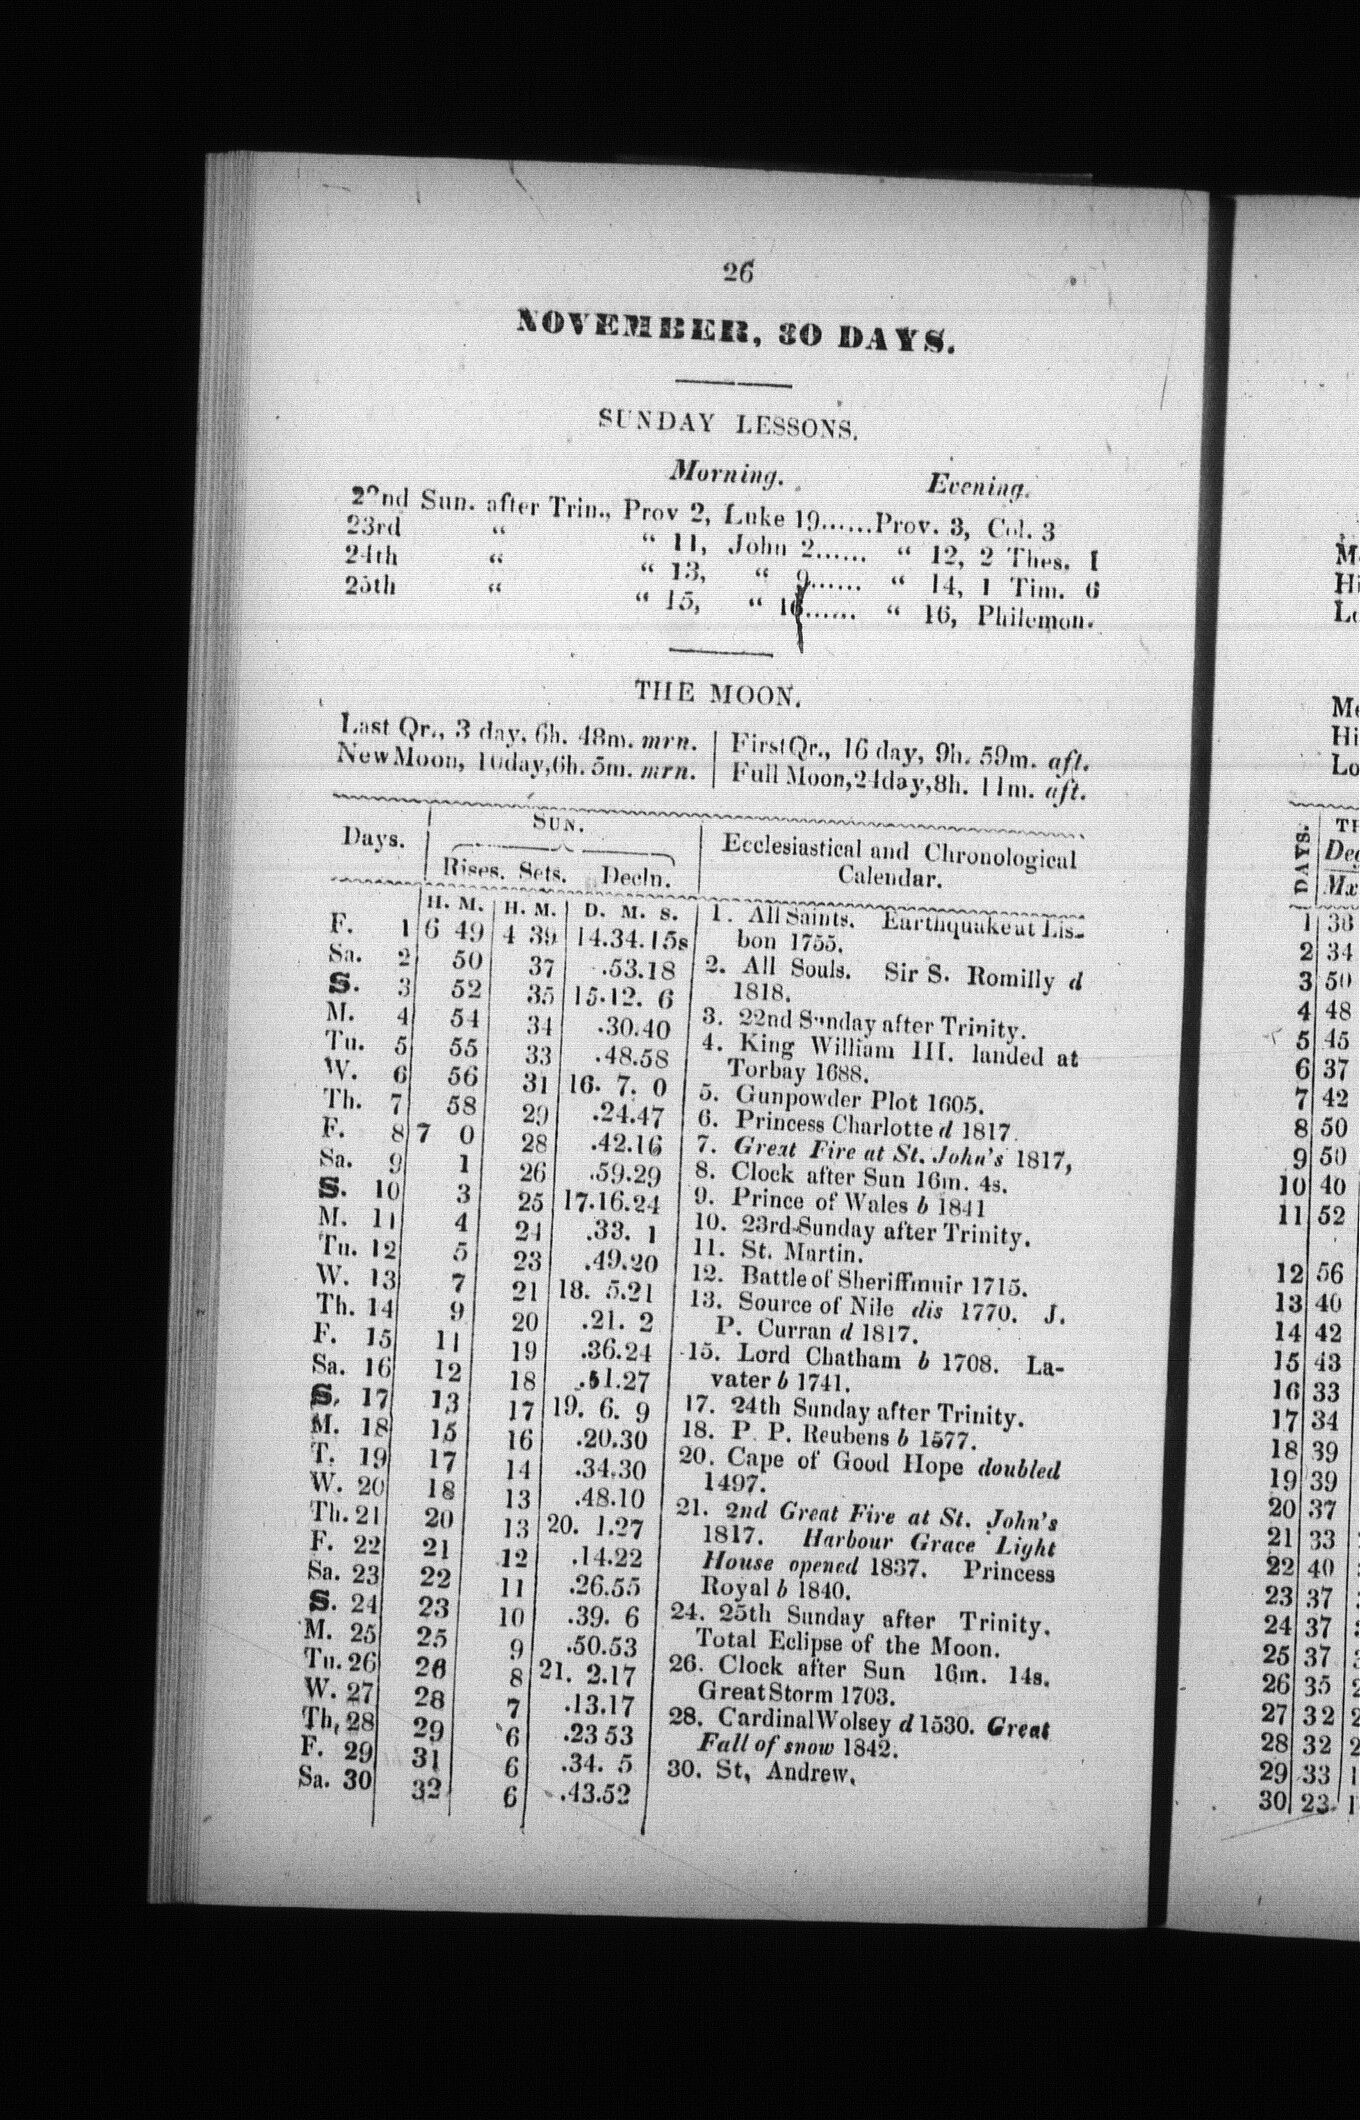 26
NOVEMBER, 30 DAYS.
SUNDAY LESSONS.
Morning. Evening.
22nd Sun. after Trin., Prov 2, Luke 19......Prov. 3, Col. 3
23rd “ “ 11, John 2...... “ 12, 2 Thes. 1
24th “ “ 13, “ 9...... “ 14, 1 Tim. 6
25th “ “ 15, “ 16...... “ 16, Philemon.
THE MOON.
Last Qr., 3 day, 6h. 48m. mrn. | First Qr., 16 day, 9h. 59m. aft.
New Moon, 10day, 6h. 5m. mrn. | Full Moon, 24day, 8h. 11m. aft.
Days. SUN. Ecclesiastical and Chronological
Rises. Sets. Decln. Calendar.
H. M. H. M. D. M. S.
F. 1 6 49 4 39 14.34.15s
Sa. 2 50 37 .53.18
S. 3 52 35 15.12. 6
M. 4 54 34 .30.40
Tu. 5 55 33 .48.58
W. 6 56 31 16. 7. 0
Th. 7 58 29 .24.47
F. 8 7 0 28 .42.16
Sa. 9 1 26 .59.29
S. 10 3 25 17.16.24
M. 11 4 24 .33. 1
Tu. 12 5 23 .49.20
W. 13 7 21 18. 5.21
Th. 14 9 20 .21. 2
F. 15 11 19 .36.24
Sa. 16 12 18 .51.27
S. 17 13 17 19. 6. 9
M. 18 15 16 .20.30
T. 19 17 14 .34.30
W. 20 18 13 .48.10
Th. 21 20 13 20. 1.27
F. 22 21 12 .14.22
Sa. 23 22 11 .26.55
S. 24 23 10 .39. 6
M. 25 25 9 .50.53
Tu. 26 26 8 21. 2.17
W. 27 28 7 .13.17
Th, 28 29 6 .23 53
F. 29 31 6 .34. 5
Sa. 30 32 6 .43.52
1. All Saints. Earthquake at Lis-
bon 1755.
2. All Souls. Sir S. Romilly d
1818.
3. 22nd Sunday after Trinity.
4. King William III. landed at
Torbay 1688.
5. Gunpowder Plot 1605.
6. Princess Charlotte d 1817.
7. Great Fire at St. John's 1817,
8. Clock after Sun 16m. 4s.
9. Prince of Wales b 1841
10. 23rd Sunday after Trinity.
11. St. Martin.
12. Battle of Sheriffmuir 1715.
13. Source of Nile dis 1770. J.
P. Curran d 1817.
15. Lord Chatham b 1708. La-
vater b 1741.
17. 24th Sunday after Trinity.
18. P. P. Reubens b 1577.
20. Cape of Good Hope doubled
1497.
21. 2nd Great Fire at St. John's
1817. Harbour Grace Light
House opened 1837. Princess
Royal b 1840.
24. 25th Sunday after Trinity.
Total Eclipse of the Moon.
26. Clock after Sun 16m. 14s.
Great Storm 1703.
28. Cardinal Wolsey d 1530. Great
Fall of snow 1842.
30. St, Andrew.
DAYS.
1 38
2 34
3 50
4 48
5 45
6 37
7 42
8 50
9 50
10 40
11 52
12 56
13 40
14 42
15 43
16 33
17 34
18 39
19 39
20 37
21 33
22 40
23 37
24 37
25 37
26 35
27 32
28 32
29 33
30 23